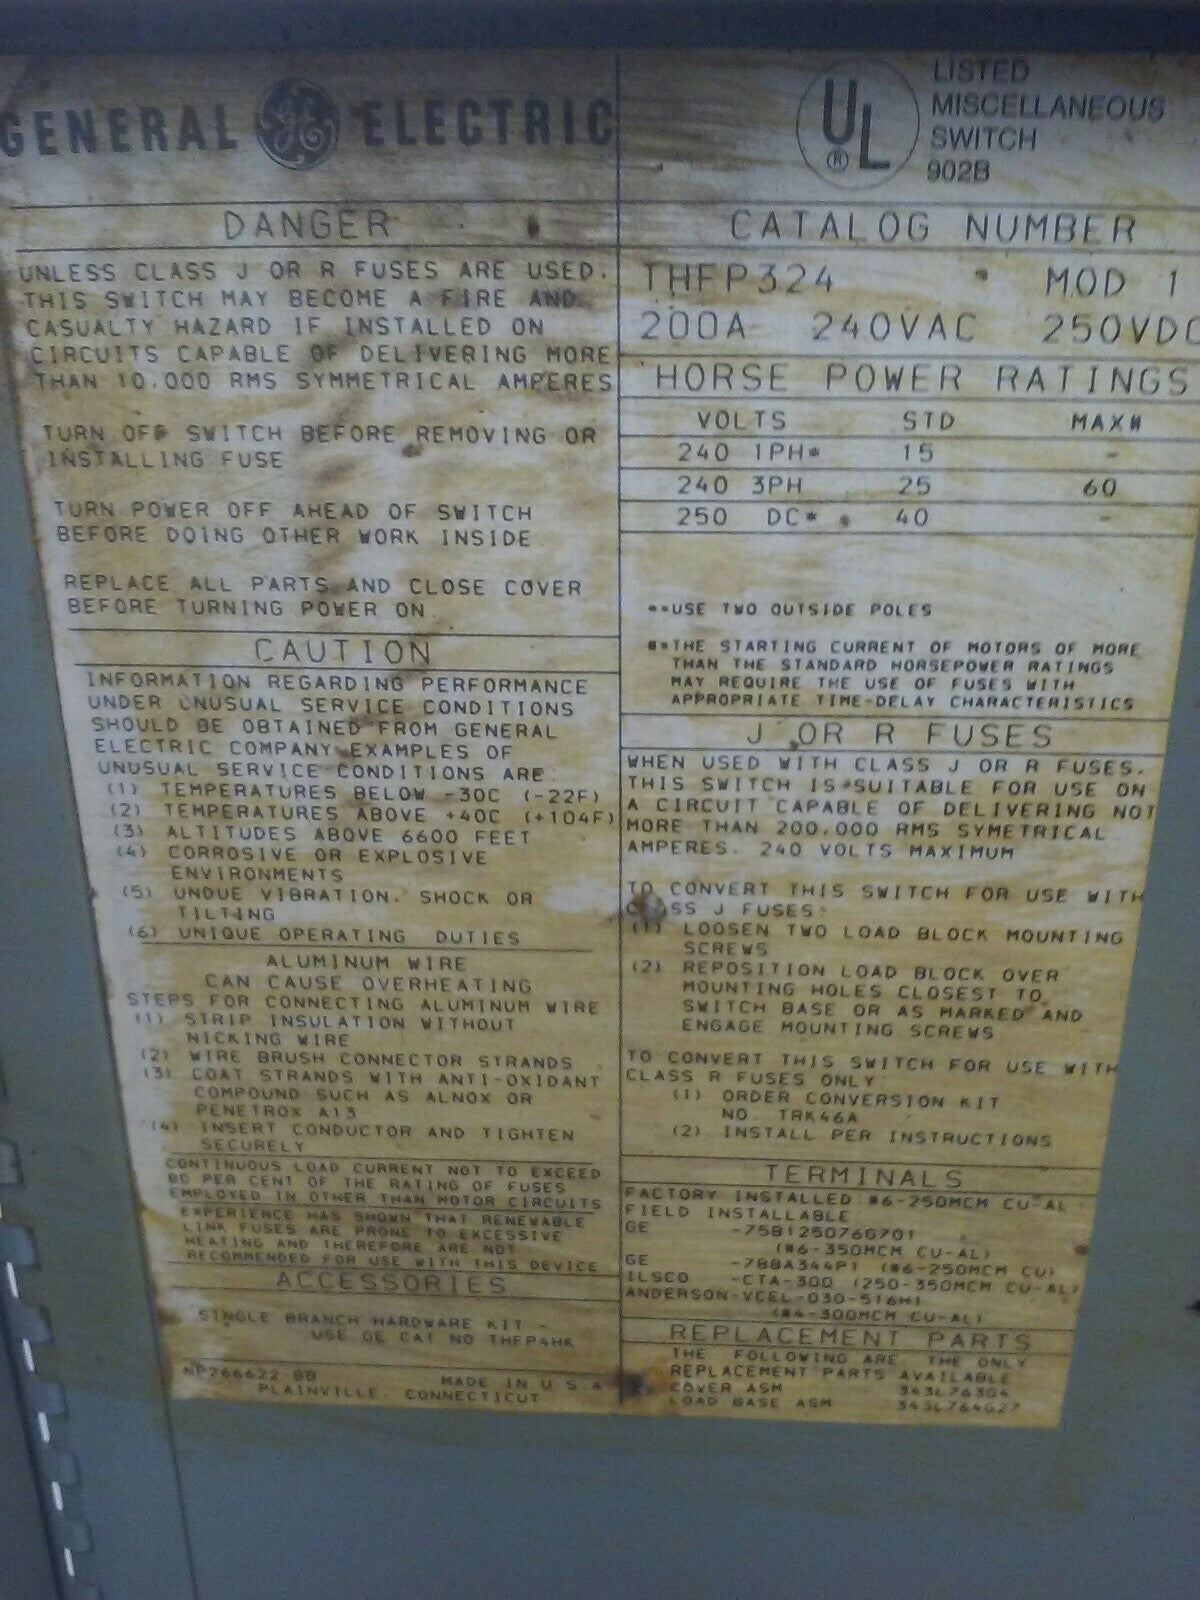 GENERAL GE ELECTRIC
DANGER
UNLESS CLASS J OR R FUSES ARE USED.
THIS SWITCH MAY BECOME A FIRE AND
CASUALTY HAZARD IF INSTALLED ON
CIRCUITS CAPABLE OF DELIVERING MORE
THAN 10,000 RMS SYMMETRICAL AMPERES
TURN OFF SWITCH BEFORE REMOVING OR
INSTALLING FUSE
TURN POWER OFF AHEAD OF SWITCH
BEFORE DOING OTHER WORK INSIDE
REPLACE ALL PARTS AND CLOSE COVER
BEFORE TURNING POWER ON
CAUTION
INFORMATION REGARDING PERFORMANCE
UNDER UNUSUAL SERVICE CONDITIONS
SHOULD BE OBTAINED FROM GENERAL
ELECTRIC COMPANY EXAMPLES OF
UNUSUAL SERVICE CONDITIONS ARE
(1) TEMPERATURES BELOW -30C (-22F)
(2) TEMPERATURES ABOVE +40C (+104F)
(3) ALTITUDES ABOVE 6600 FEET
(4) CORROSIVE OR EXPLOSIVE
ENVIRONMENTS
(5) UNDUE VIBRATION, SHOCK OR
TILTING
(6) UNIQUE OPERATING DUTIES
ALUMINUM WIRE
CAN CAUSE OVERHEATING
STEPS FOR CONNECTING ALUMINUM WIRE
(1) STRIP INSULATION WITHOUT
NICKING WIRE
(2) WIRE BRUSH CONNECTOR STRANDS
(3) COAT STRANDS WITH ANTI-OXIDANT
COMPOUND SUCH AS ALNOX OR
PENETROX A13
(4) INSERT CONDUCTOR AND TIGHTEN
SECURELY
CONTINUOUS LOAD CURRENT NOT TO EXCEED
80 PER CENT OF THE RATING OF FUSES
EMPLOYED IN OTHER THAN MOTOR CIRCUITS
EXPERIENCE HAS SHOWN THAT RENEWABLE
LINK FUSES ARE PRONE TO EXCESSIVE
HEATING AND THEREFORE ARE NOT
RECOMMENDED FOR USE WITH THIS DEVICE
ACCESSORIES
SINGLE BRANCH HARDWARE KIT -
USE GE CAT NO THFP4HK
NP766622 BB MADE IN U.S.A
PLAINVILLE, CONNECTICUT
UL ®
LISTED
MISCELLANEOUS
SWITCH
902B
CATALOG NUMBER
THFP324 MOD 1
200A 240VAC 250VDC
HORSE POWER RATINGS
VOLTS STD MAX#
240 1PH* 15 -
240 3PH 25 60
250 DC* 40 -
*=USE TWO OUTSIDE POLES
#=THE STARTING CURRENT OF MOTORS OF MORE
THAN THE STANDARD HORSEPOWER RATINGS
MAY REQUIRE THE USE OF FUSES WITH
APPROPRIATE TIME-DELAY CHARACTERISTICS
J OR R FUSES
WHEN USED WITH CLASS J OR R FUSES,
THIS SWITCH IS SUITABLE FOR USE ON
A CIRCUIT CAPABLE OF DELIVERING NOT
MORE THAN 200,000 RMS SYMETRICAL
AMPERES. 240 VOLTS MAXIMUM
TO CONVERT THIS SWITCH FOR USE WITH
CLASS J FUSES:
(1) LOOSEN TWO LOAD BLOCK MOUNTING
SCREWS
(2) REPOSITION LOAD BLOCK OVER
MOUNTING HOLES CLOSEST TO
SWITCH BASE OR AS MARKED AND
ENGAGE MOUNTING SCREWS
TO CONVERT THIS SWITCH FOR USE WITH
CLASS R FUSES ONLY
(1) ORDER CONVERSION KIT
NO. TRK46A
(2) INSTALL PER INSTRUCTIONS
TERMINALS
FACTORY INSTALLED #6-250MCM CU-AL
FIELD INSTALLABLE
GE -75B125076G701
(#6-350MCM CU-AL)
GE -788A344P1 (#6-250MCM CU)
ILSCO -CTA-300 (250-350MCM CU-AL)
ANDERSON-VCEL-030-516H1
(#4-300MCM CU-AL)
REPLACEMENT PARTS
THE FOLLOWING ARE THE ONLY
REPLACEMENT PARTS AVAILABLE
COVER ASM 343L763G4
LOAD BASE ASM 343L764G27